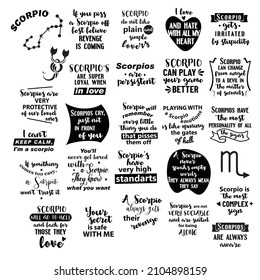 SCORPIO
If you piss
a Scorpio off
best believe
REVENGE
IS COMING
SCORPIO
do not like
plain and
simple
lovers
I love
AND HATE
WITH ALL MY
HEART
SCORPIO
gets
IRRITATED
by stupidity
SCORPIO'S
ARE SUPER
LOYAL WHEN
in love
Scorpios
are
persistent
SCORPIO
CAN PLAY
your game
BETTER
SCORPIO
CAN CHANGE
FROM ANGEL
TO A DEVIL IN
THE MATTER OF
seconds!
Scorpios
ARE VERY
PROTECTIVE
of our loved
ones
SCORPIOS CRY,
just not
IN FRONT
OF YOU
Scorpio will
remember
every little
thing you do
that pisses
them off
PLAYING WITH
scorpio
opening
the gates
of hell
SCORPIOS HAVE
THE MOST
PERSONALITY OF ALL
the signs
I can't
KEEP CALM,
I'm a scorpio
If something
seems too easy
a Scorpio
won't trust it
You'll
never get
bored with
a Scorpio
They know
what you want
Scorpio's
have
very high
standarts
Scorpio's
HAVE
WEAKLY EMPATHY
THEY ALWAYS MEAN
THEY SAY
Scorpio is
the most
COMPLEX
signs
SCORPIO
WILL GO TO HELL
and back for
those they
love
Your
secret
is safe
WITH ME
A Scorpio
always gets
their
revenge
Scorpios are
not
VERY SOCIABLE
and are suited
for being
ALONE
SCORPIO
ARE ALWAYS
aware
shutterstock.com · 2104898159